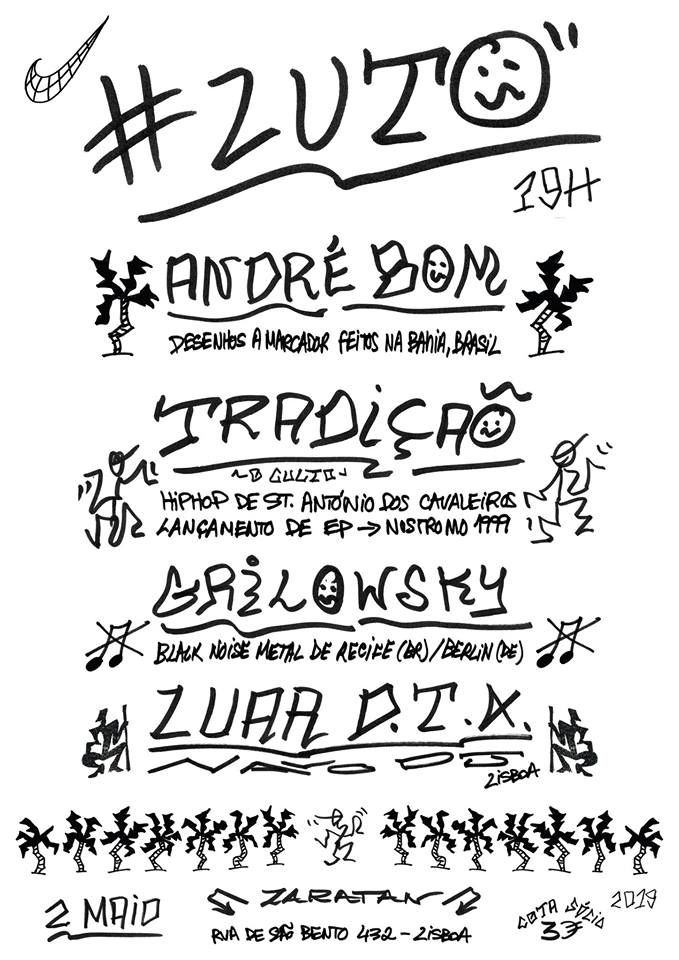 #ZUTO"
19H
ANDRÉ BOM
DESENHOS A MARCADOR FEITOS NA BAHIA, BRASIL
TRADIÇAÕ
~O CULTO~
HIPHOP DE ST. ANTÓNIO DOS CAVALEIROS
LANÇAMENTO DE EP → NOSTROMO 1999
GRILOWSKY
BLACK NOISE METAL DE RECIFE (BR)/BERLIN (DE)
ZUAR D.T.X.
LISBOA
2 MAIO
ZARATAN
RUA DE SÃO BENTO 432 - LISBOA
COTA SÓCIO
2019